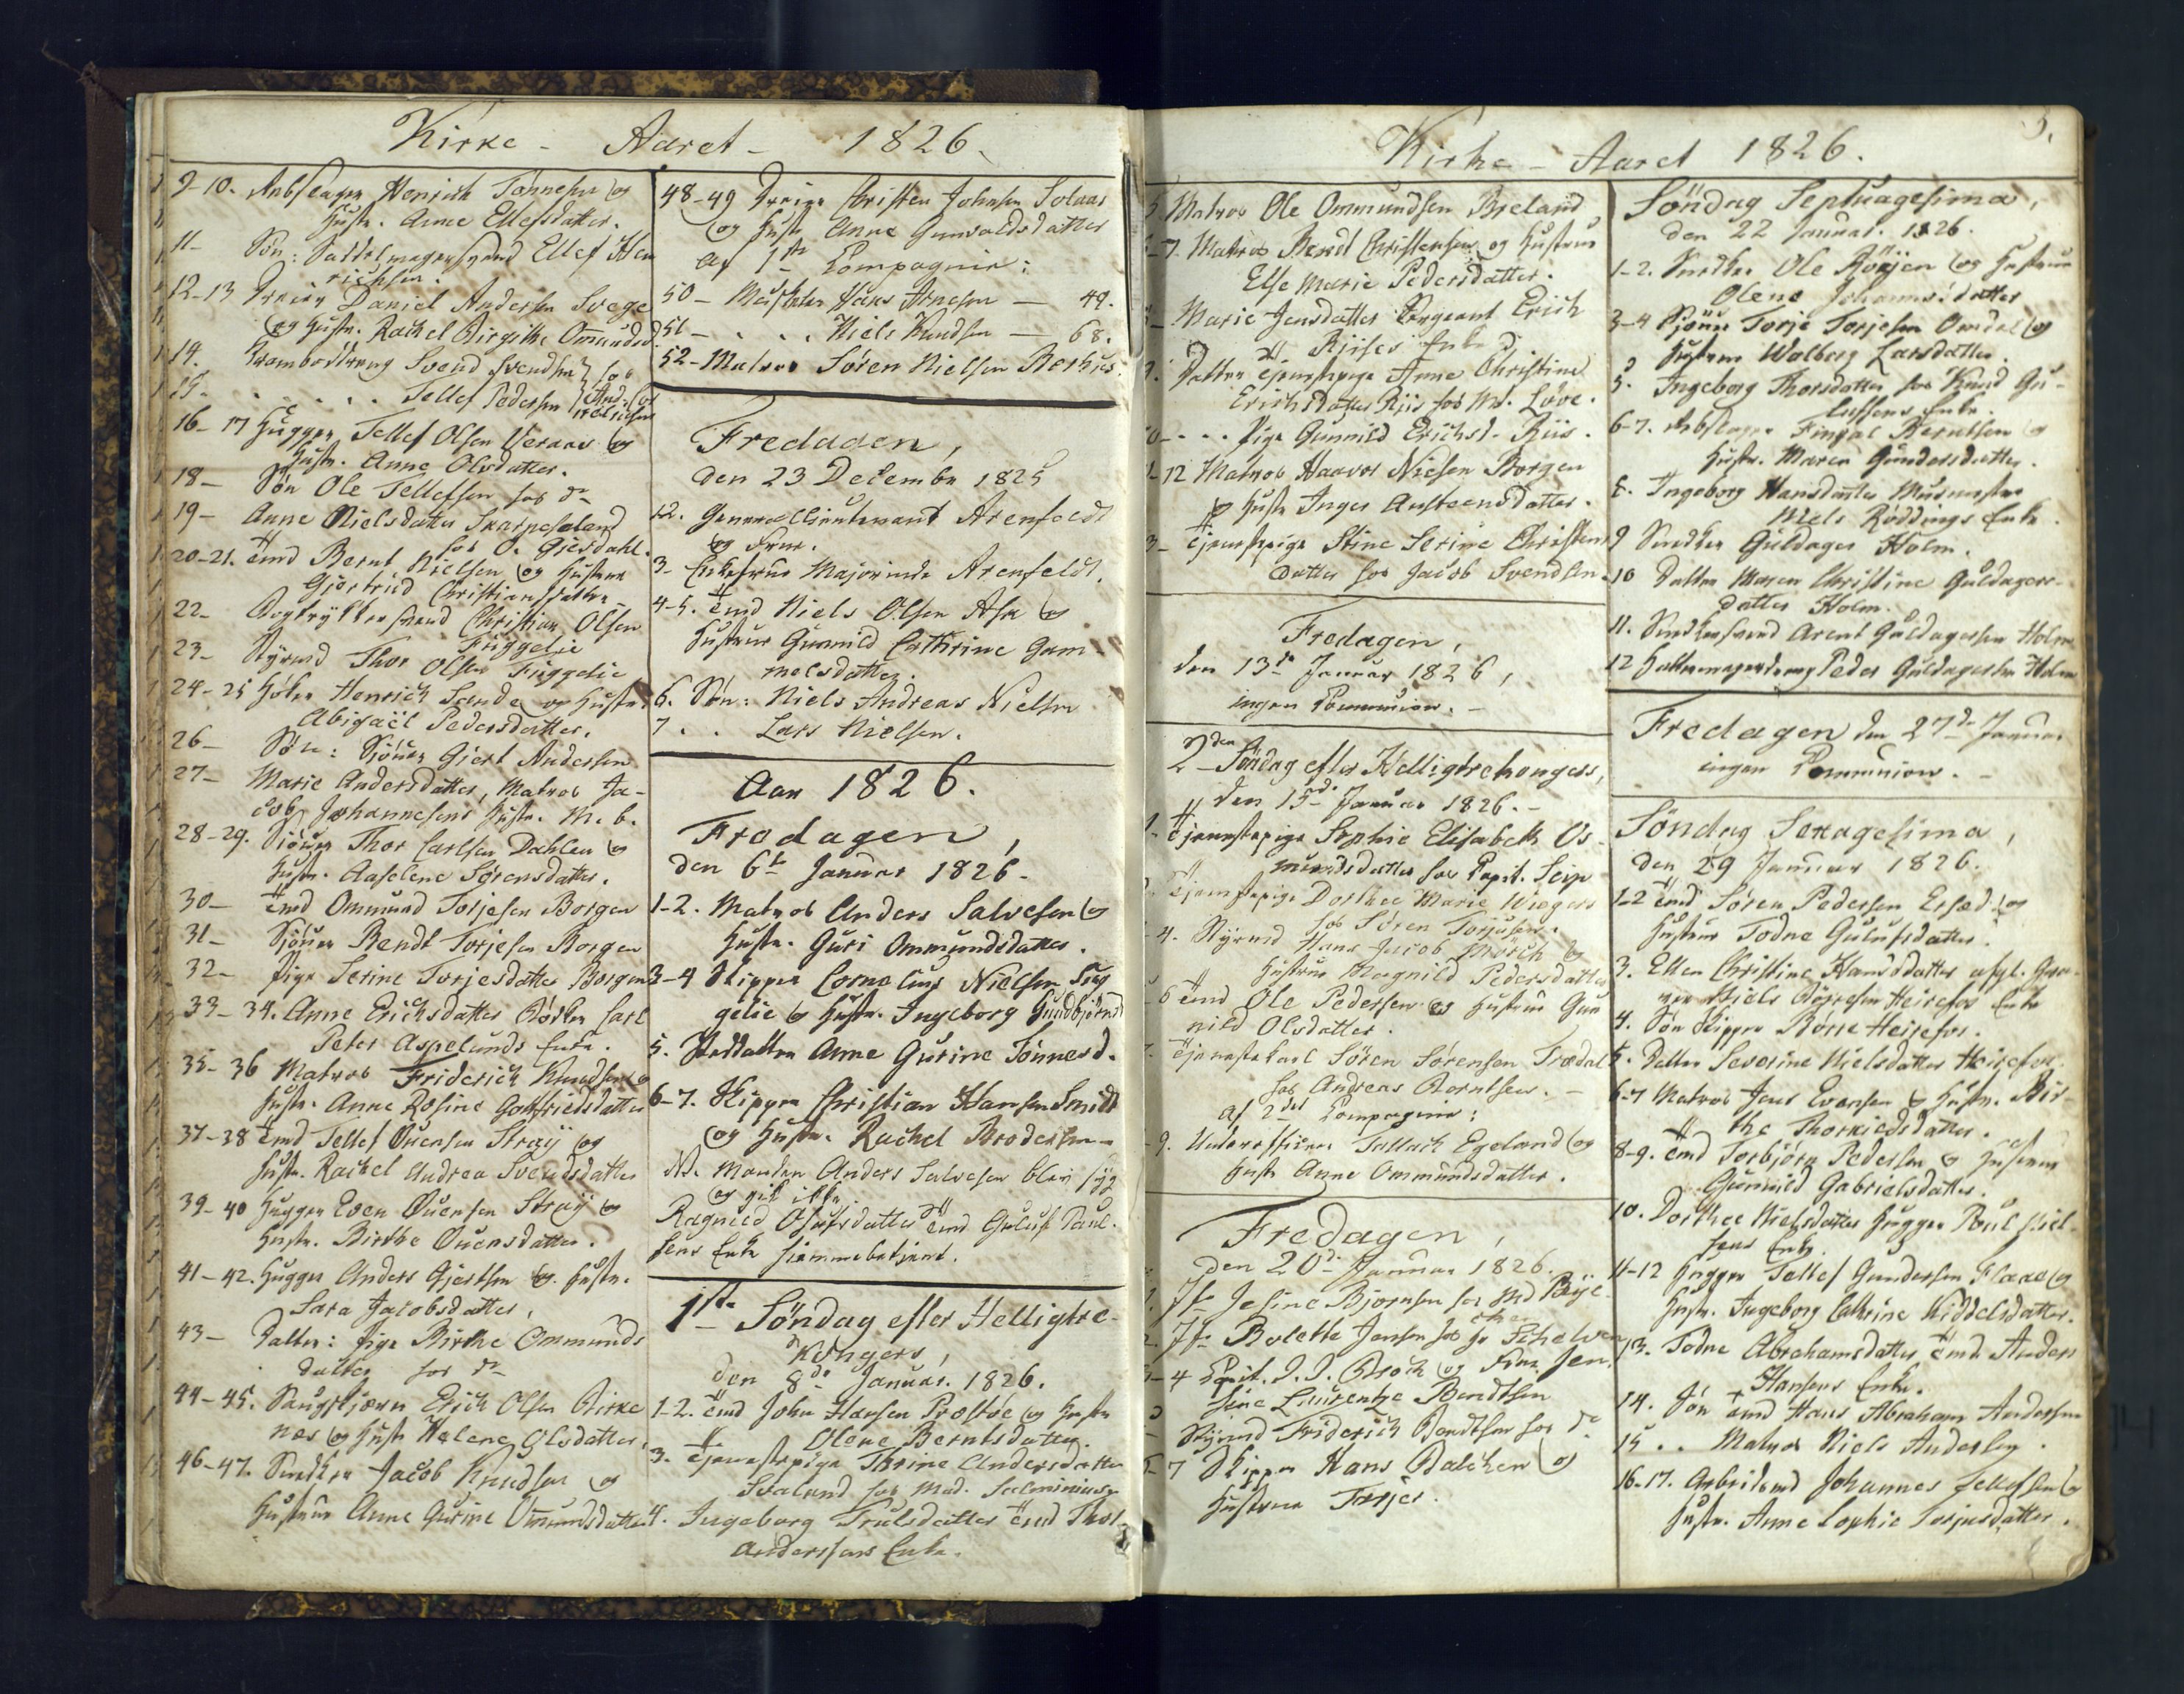 Kirke - Aaret - 1826.
9-10. Henrich Tönnesen og
Hustr. Anne Ellefsdatter.
11- Sön: Sadelmagersvend Ellef Hen
richsen.
12-13 Dreier Daniel Andersen Svege
og Hustr. Rachel Birgithe Ommundsd.
14. Svend Svendsen hos
15. . . . . . Tellef Pedersen
16-17 Hugger Tellef Olsen Veraas og
Hustr. Anne Olsdatter.
18- Sön Ole Tellefsen hos do
19- Anne Nielsdatter Skarpeseland
hos O. Giesdahl.
20-21. Tömd Bernt Nielsen og Hustrue
Giørtrud Christiansdatter
22- Bogtrykkersvend Christian Olsen
Friggelie
23- Styrmd Thor Olsen Friggelie
24-25 Høker Henrich Sande og Hustr.
Abigaël Pedersdatter.
26- Sön: Sjöm Giert Andersen
27- Marie Andersdatter, Matros Ja-
cob Johannesens Hustr. M. b.
28-29. Thor Carlsen Dahlen og
Hustr. Aaselene Sørensdatter.
30- Tömd Ommund Torjesen Borgen
31- Bendt Torjesen Borgen
32- Pige Serine Torjesdatter Borgen
33-34. Anne Erichsdatter Carl
Peter Aspelunds Enke.
35-36 Matros Friderich Knudsen og
Hustr. Anne Rosine Gottfriedsdatter
37-38 Tömd Tellef Ouensen Straÿ og
Hustr. Rachel Andrea Svendsdatter
39-40 Hugger Even Ouensen Straÿ og
Hustr. Birthe Ouensdatter.
41-42. Hugger Anders Gjertsen og Hustr.
Sara Jacobsdatter.
43- Datter: Pige Birthe Ommunds
datter hos do
44-45. Erich Olsen Birke
næs og Hustr Helene Olsdatter.
46-47. Snedker Jacob Knudsen og
Hustrue Anne Gurine Ommundsdatter
48-49 Dreier Christen Johnsen Solaas
og Hustr Anne Gunvaldsdatter
af 1ste Compagnie:
50- Hans Arnesen - 49.
51 - . . . Niels Knudsen - 68.
52- Matros Søren Nielsen
Fredagen,
den 23 December 1825
1-2. Generallieutenant Arenfeldt
og Frue.
3- Enkefrue Majorinde Arenfeldt.
4-5. Tömd Niels Olsen og
Hustrue Gunnild Cathrine Gam-
melsdatter.
6. Sön: Niels Andreas Nielsen
7 . . Lars Nielsen.
Aar 1826.
Fredagen,
den 6te Januar 1826.
1-2. Matros Anders Salvesen og
Hustr. Guri Ommundsdatter.
3-4 Skipper Cornelius Nielsen Frig
gelie og Hustr. Ingeborg Gundbjörnsd
5. Anne Gurine Tønnesd.
6-7. Skipper Christian Hansen Smidt
og Hustr. Rachel Brodersen
NB. Manden Anders Salvesen blev syg
og gik ikke.
Ragnild Olufsdatter Tömd Guluf Paul-
sens Enke hjemmebetjent.
1ste Søndag efter Helligtre-
Kongers,
den 8de Januar. 1826.
1-2. Tömd John Hansen Prestöe og Hustr
Olene Berntsdatter.
3. Tjenestepige Thrine Andersdatter
Svaland hos Mad. Salminius
4. Ingeborg Trulsdatter Tömd Thor
Anderssens Enke.
Kirke - Aaret 1826.
5.
5 Matros Ole Ommundsen Bieland,
6-7. Matros Bendt Christensen og Hustrue
Else Marie Pedersdatter.
8- Marie Jensdatter Sergeant Erich
Riises Enke
9. Datter Tjenestepige Anne Christine
Erichsdatter Riis hos Mr. Löve.
10- . . . Pige Gunnild Erichsd. Riis.
11-12 Matros Haavor Nielsen Borgen
og Hustr Inger Austeensdatter.
13- Tjenestepige Stine Serine Christens
datter hos Jacob Svendsen.
Fredagen,
den 13de Januar 1826,
ingen Communion. -
2den Söndag efter Helligtrekongers,
den 15de Januar 1826. -
1- Tjenestepige Sophie Elisabeth Os-
mundsdatter hos Capit. Seip
Tjenestepige Dorthee Marie Wiegers
hos Sören Torjusen.
4. Styrmd Hans Jacob Mörch og
Hustrue Magnild Pedersdatter
6 Tömd Ole Pedersen og Hustrue Gun
nild Olsdatter.
7. Tjenestekarl Sören Sørensen Trædal
hos Andreas Berntsen. -
af 2det Compagnie:
9. Underofficer Tallach Egeland og
Hustr Anne Ommundsdatter.
Fredagen,
den 20de Januar 1826.
1. Jfr Jesine Bjornsen hos
2. Jfr Bolette Jensen hos
3-4 Capit. J. J. Broch og Frue Jen-
sine Laurentze Bendtsen
Styrmd Friderich Bendtsen hos do
6-7 Skipper Hans Balchen og
Hustrue Torjer.
Söndag Septuagesima,
den 22 Januar. 1826.
1-2. Snedker Ole og Hustrue
Olene Johannesdatter
3-4 Torje Torjesen Omdal og
Hustrue Wolberg Larsdatter.
5. Ingeborg Thorsdatter hos Knud Gu-
lufsens Enke.
6-7. Fingal Berntsen og
Hustr. Maren Gundersdatter.
8. Ingeborg Hansdatter Muurmester
Niels Röddings Enke.
9 Snedker Guldager Holm.
10 Datter Maren Christine Guldagers-
datter Holm.
11. Snedkersvend Arent Guldagersen Holm
12 Peder Guldagersen Holm
Fredagen den 27de Januar
ingen Communion. -
Söndag Sexagesima,
den 29 Januar 1826.
1-2 Tömd Søren Pedersen og
Hustrue Todne Gulufsdatter.
3. Ellen Christine Hansdatter afgl.
Niels Heirefos Enke
4. Sön Skipper Börre Heirefos.
5. Datter Severine Nielsdatter Heirefos
6-7 Matros Jens Evensen og Hustr. Bir-
the Thorkildsdatter.
8-9. Tömd Torbjörn Pedersen og Hustrue
Gunnild Gabrielsdatter.
10. Dorthee Nielsdatter Hugger Poul Niel
sens Enke.
11-12 Hugger Tellef Gundersen Flaae og
Hustr. Ingeborg Cathrine Kiddelsdatter.
13. Todne Abrahamsdatter Tömd Anders
Hansens Enke.
14. Sön Tömd Hans Abraham Andersen
15 . . Matros Niels Andersen.
16-17. Arbeidsmd Johannes Tellefsen og
Hustr. Anne Sophie Torjusdatter.